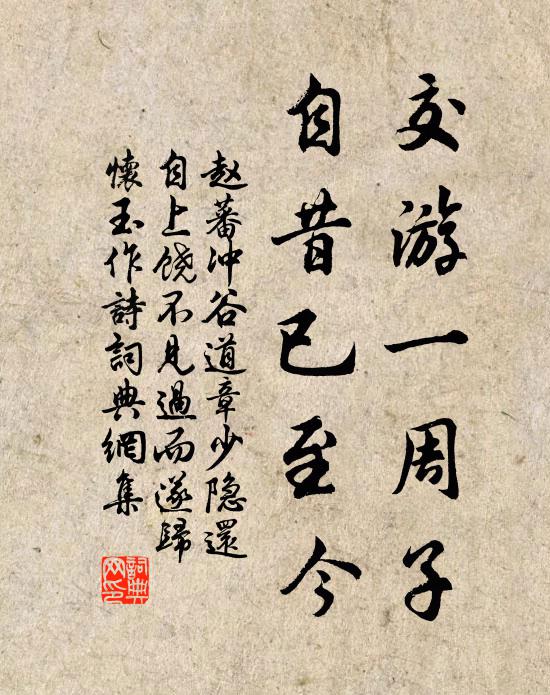 交游一周子
自昔已至今
赵蕃冲谷道章少隐還
自上饶不见過而遂歸
懷玉作詩詞典網集
詞典
网印